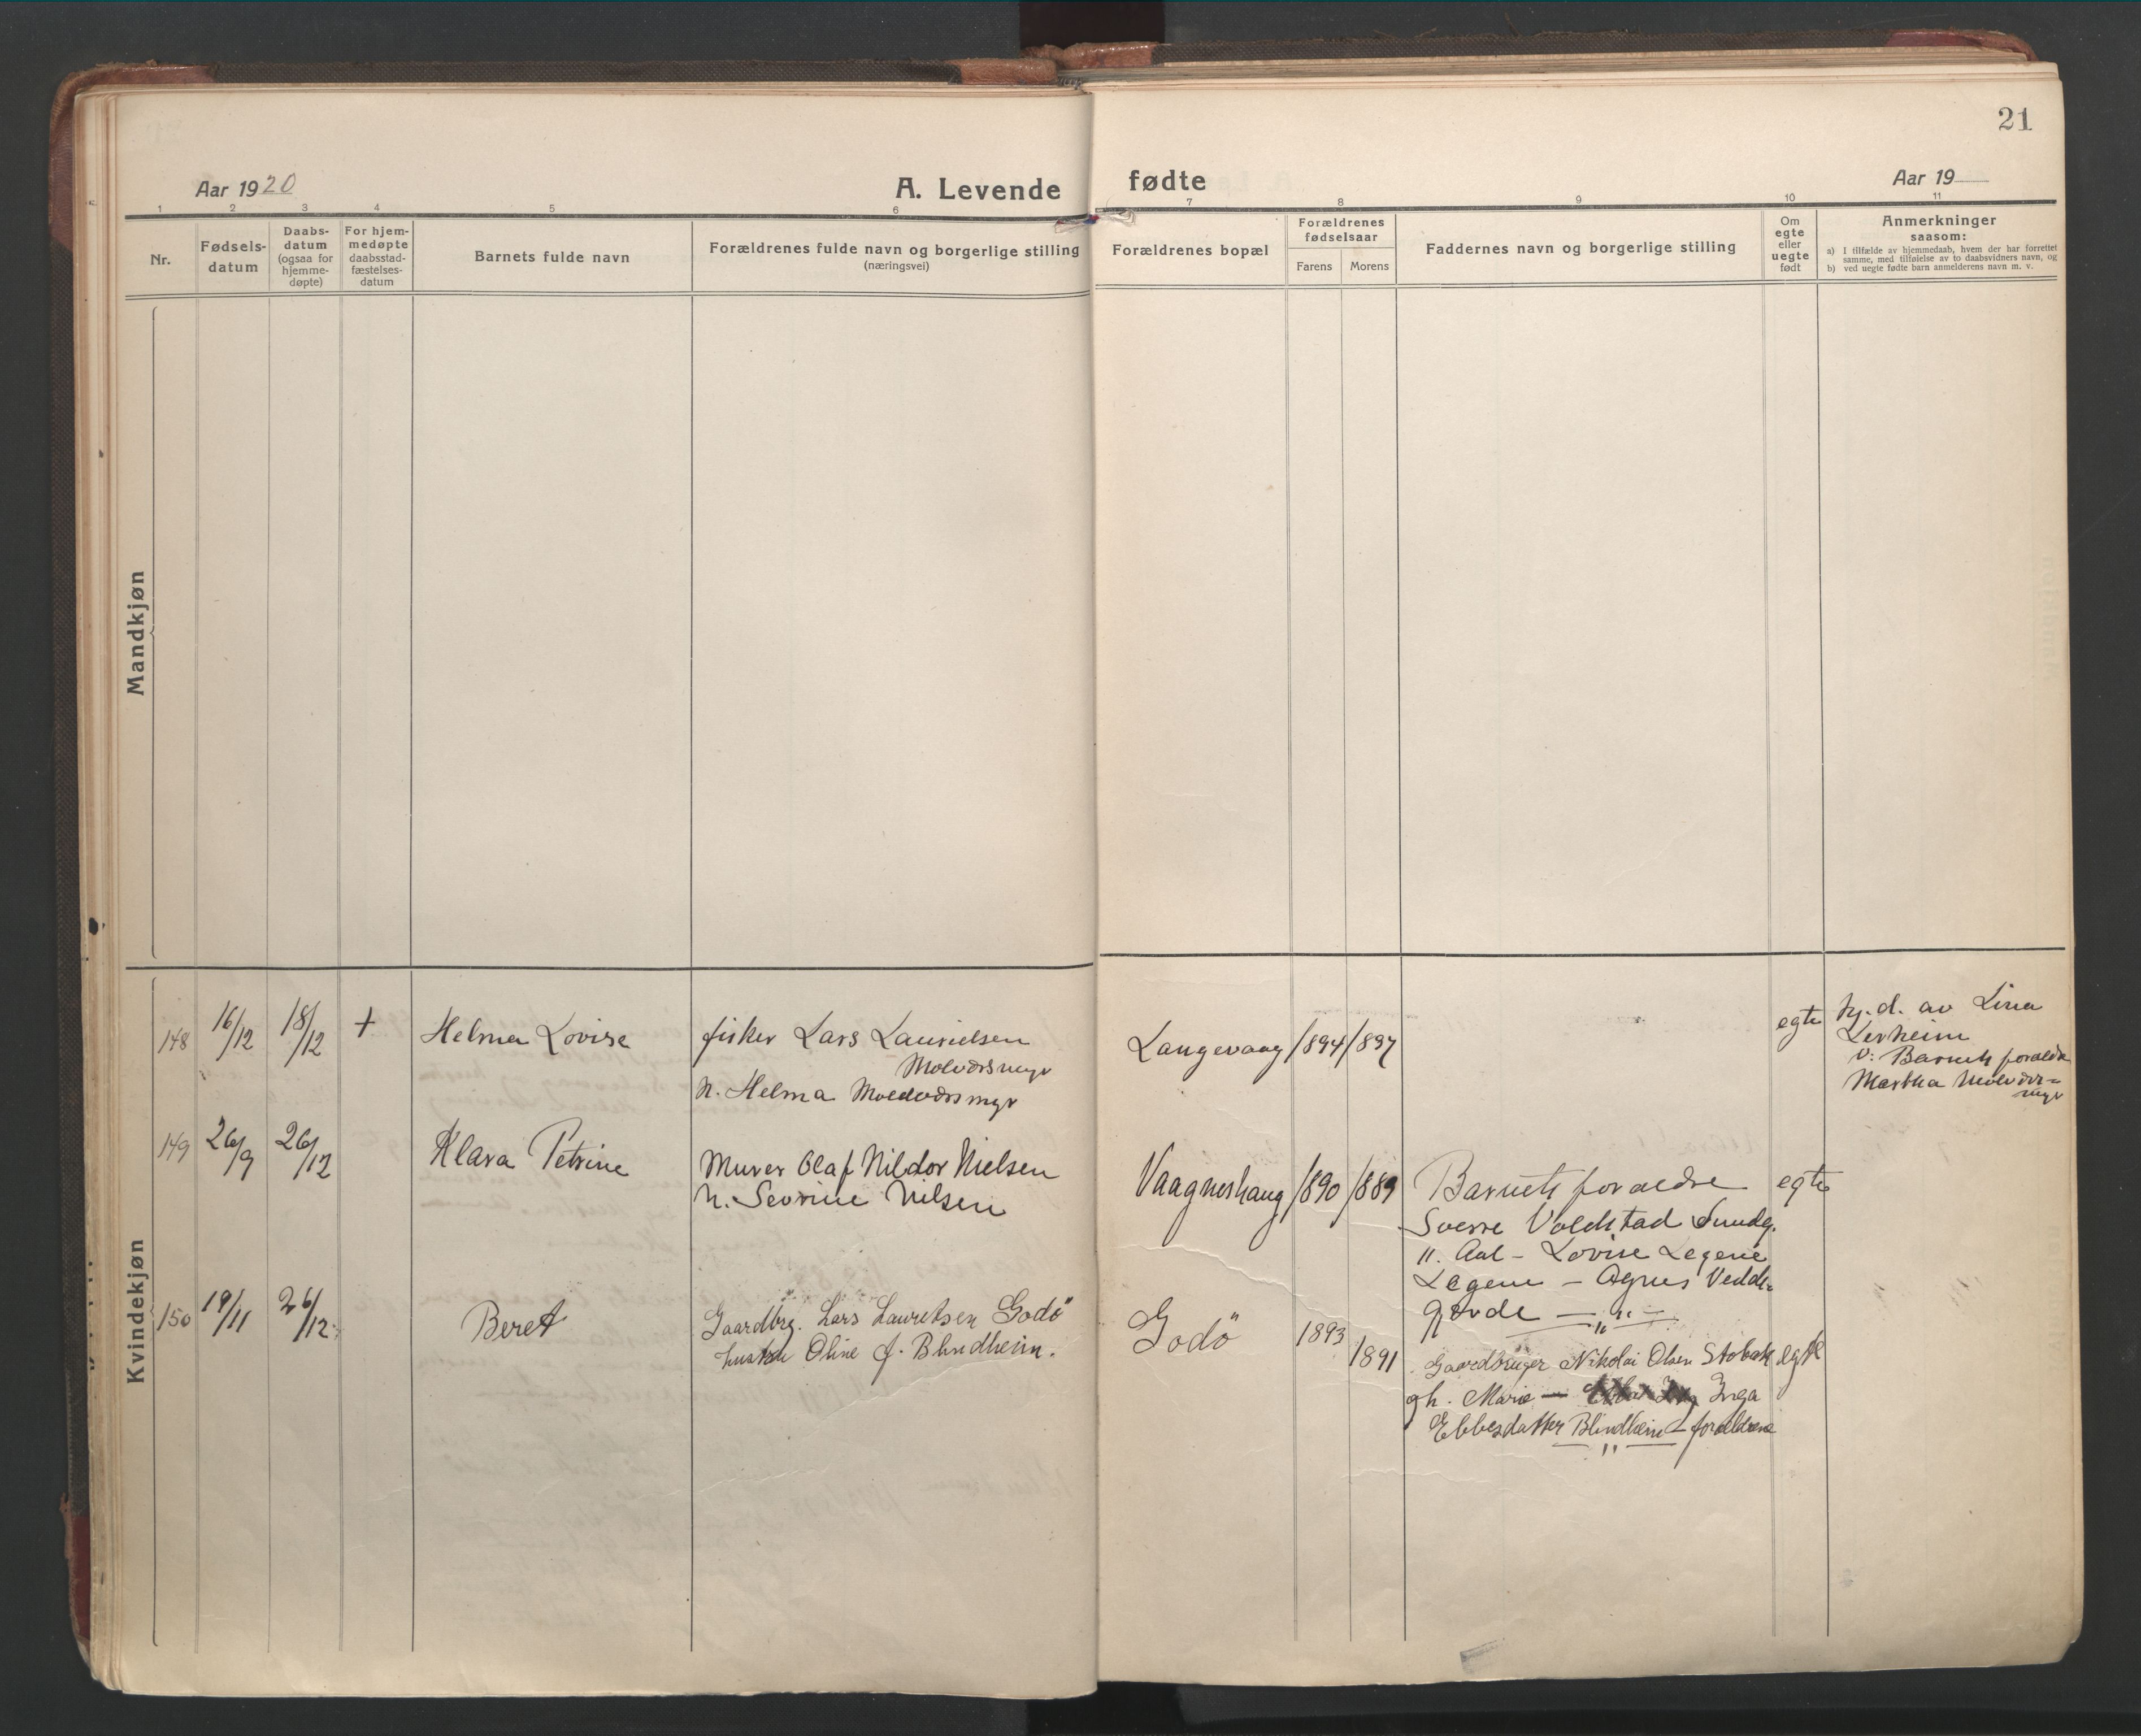 21
Aar 1920
A. Levende fødte
Aar 19
1 2 3 4 5 6 7 8 9 10 11
Nr.
Fødsels-
datum
Daabs-
datum
(ogsaa for
hjemme-
døpte)
For hjem-
medøpte
daabsstad-
fæstelses-
datum
Barnets fulde navn
Forældrenes fulde navn og borgerlige stilling
(næringsvei)
Forældrenes bopæl
Forældrenes
fødselsaar
Farens Morens
Faddernes navn og borgerlige stilling
Om
egte
eller
uegte
født
Anmerkninger
saasom:
a) I tilfælde av hjemmedaab, hvem der har forrettet
samme, med tilføielse av to daabsvidners navn, og
b) ved uegte fødte barn anmelderens navn m. v.
Mandkjøn
Kvindekjøn
148 16/12 18/12 + Helma Lovise
fisker Lars
Molværsmyr
h. Helma Moldværsmyr
Langevaag 1894 1897
egte
hj. d. av Lina
Lerheim
v: Barnets foraeldre
Martha Molvær=
myr
149 26/9 26/12 Klara Petrine
Murer Olaf Nildor Nielsen
h. Sevrine Nilsen
Vaagneshaug 1890 1889
Barnets foraeldre
egte
Sverre Voldstad Sundg.
". Aal - Lovise Legene
Legene - Agnes Vedde-
gjerde — " —
"
150 19/11 26/12 Beret
Gaardbrg. Lars Lauritsen Godö
hustru Oline J. Blindheim.
Godö 1893 1891
Gaardbruger Nikolai Olsen Stobak
egte
gh. Marie — Inga
Ebbesdatter Blindheim - forældrene
"